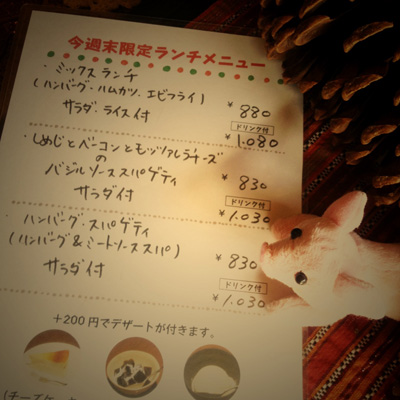 今週末限定ランチメニュー
・ミックスランチ
(ハンバーグ・ハムカツ・エビフライ)
サラダ・ライス付
¥880
ドリンク付
¥1.080
・しめじとベーコンとモッツァレラチーズ
の
バジルソーススパゲティ
サラダ付
¥830
ドリンク付
¥1.030
・ハンバーグ・スパゲティ
(ハンバーグ&ミートソーススパ)
サラダ付
¥830
ドリンク付
¥1.030
+200円でデザートが付きます。
(チーズケーキ